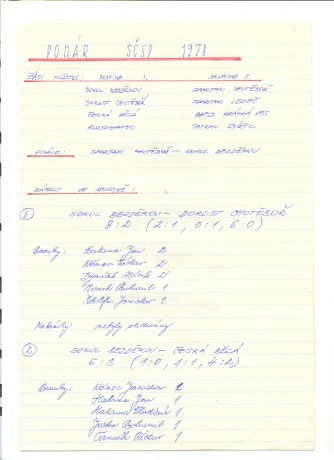 POHÁR SČSP 1978
ÚČAST MUŽSTEV: SKUPINA I. SKUPINA II.
SOKOL BEZDĚKOV SPARTAK CHOTĚBOŘ
DOROST CHOTĚBOŘ SPARTAK LEDEČ
ČESKÁ BĚLÁ
ROZSOCHATEC TATRAN
FINÁLE: SPARTAK CHOTĚBOŘ - SOKOL BEZDĚKOV
ZÁPASY VE SKUPINĚ:
1 SOKOL BEZDĚKOV - DOROST CHOTĚBOŘ
8:2 (2:1, 0:1, 6:0)
Branky: Halama Jan 2
Němec Václav 2
2
Bohumil 1
Jaroslav 1
Nahrávky: nebyly
2 SOKOL BEZDĚKOV - ČESKÁ BĚLÁ
6:3 (1:0, 1:1, 4:2)
Branky: Němec Jaroslav 2
Halama Jan 1
Halama Vladimír 1
Bohumil 1
Čermák Václav 1